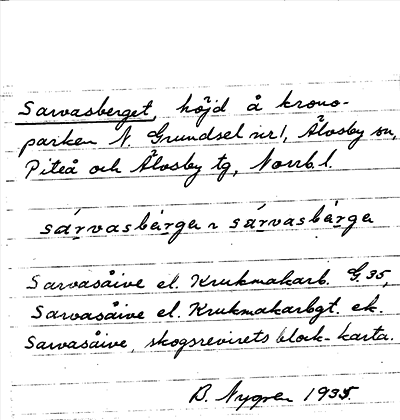 Sarvasberget, höjd å krono-
parken N. Grundsel nr 1, Älvsby sn,
Piteå och Älvsby tg, Norrb. l.
sárvasbärga ~ sárvasbèrga
Sarvasåive el. Krukmakarb. G. 35,
Sarvasåive el. Krukmakarbgt. ek.
Sarvasåive, skogsrevirets block-karta.
B. Nygren 1935.